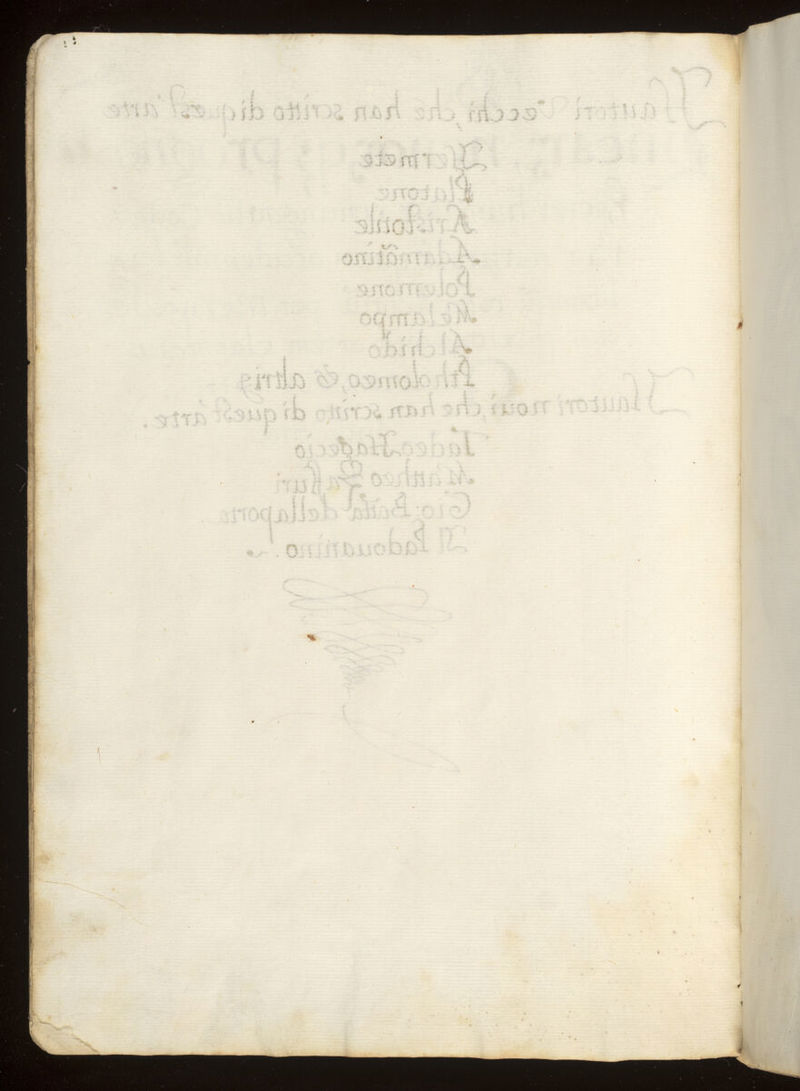 Nautori Vecchi, che han scritto di quest'arte
Hermete
Platone
Aristotile
Adamãtino
Polemone
Melampo
Alchido
Ptholomeo, et altrj
Nautori noui, che han scritto di quest'arte.
Tadeo Hagecio
Mattheo
Gio: Batta dellaporta
Il Padouanino.